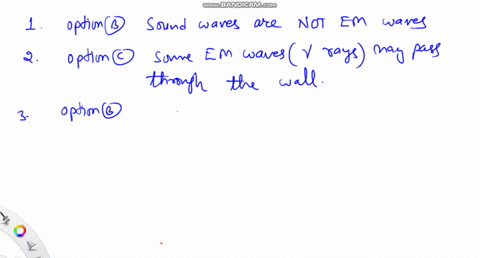 WWW.BANDICAM.COM
1. option Ⓑ Sound waves are NOT EM waves
2. option Ⓒ Some EM waves (γ rays) may pass
through the wall.
3. option Ⓑ